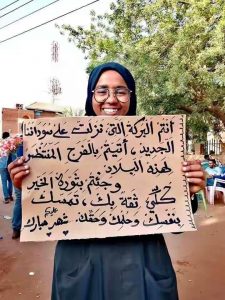 أنتم البركة التي نزلت على سوداننا
الجديد ، أتيتم بالفرج المنتظر
لهذه البلاد
وجئتم بثورة الخير
كلي ثقة بك ، تمسك
بنفسك وحلمك وحقك. شهر مبارك